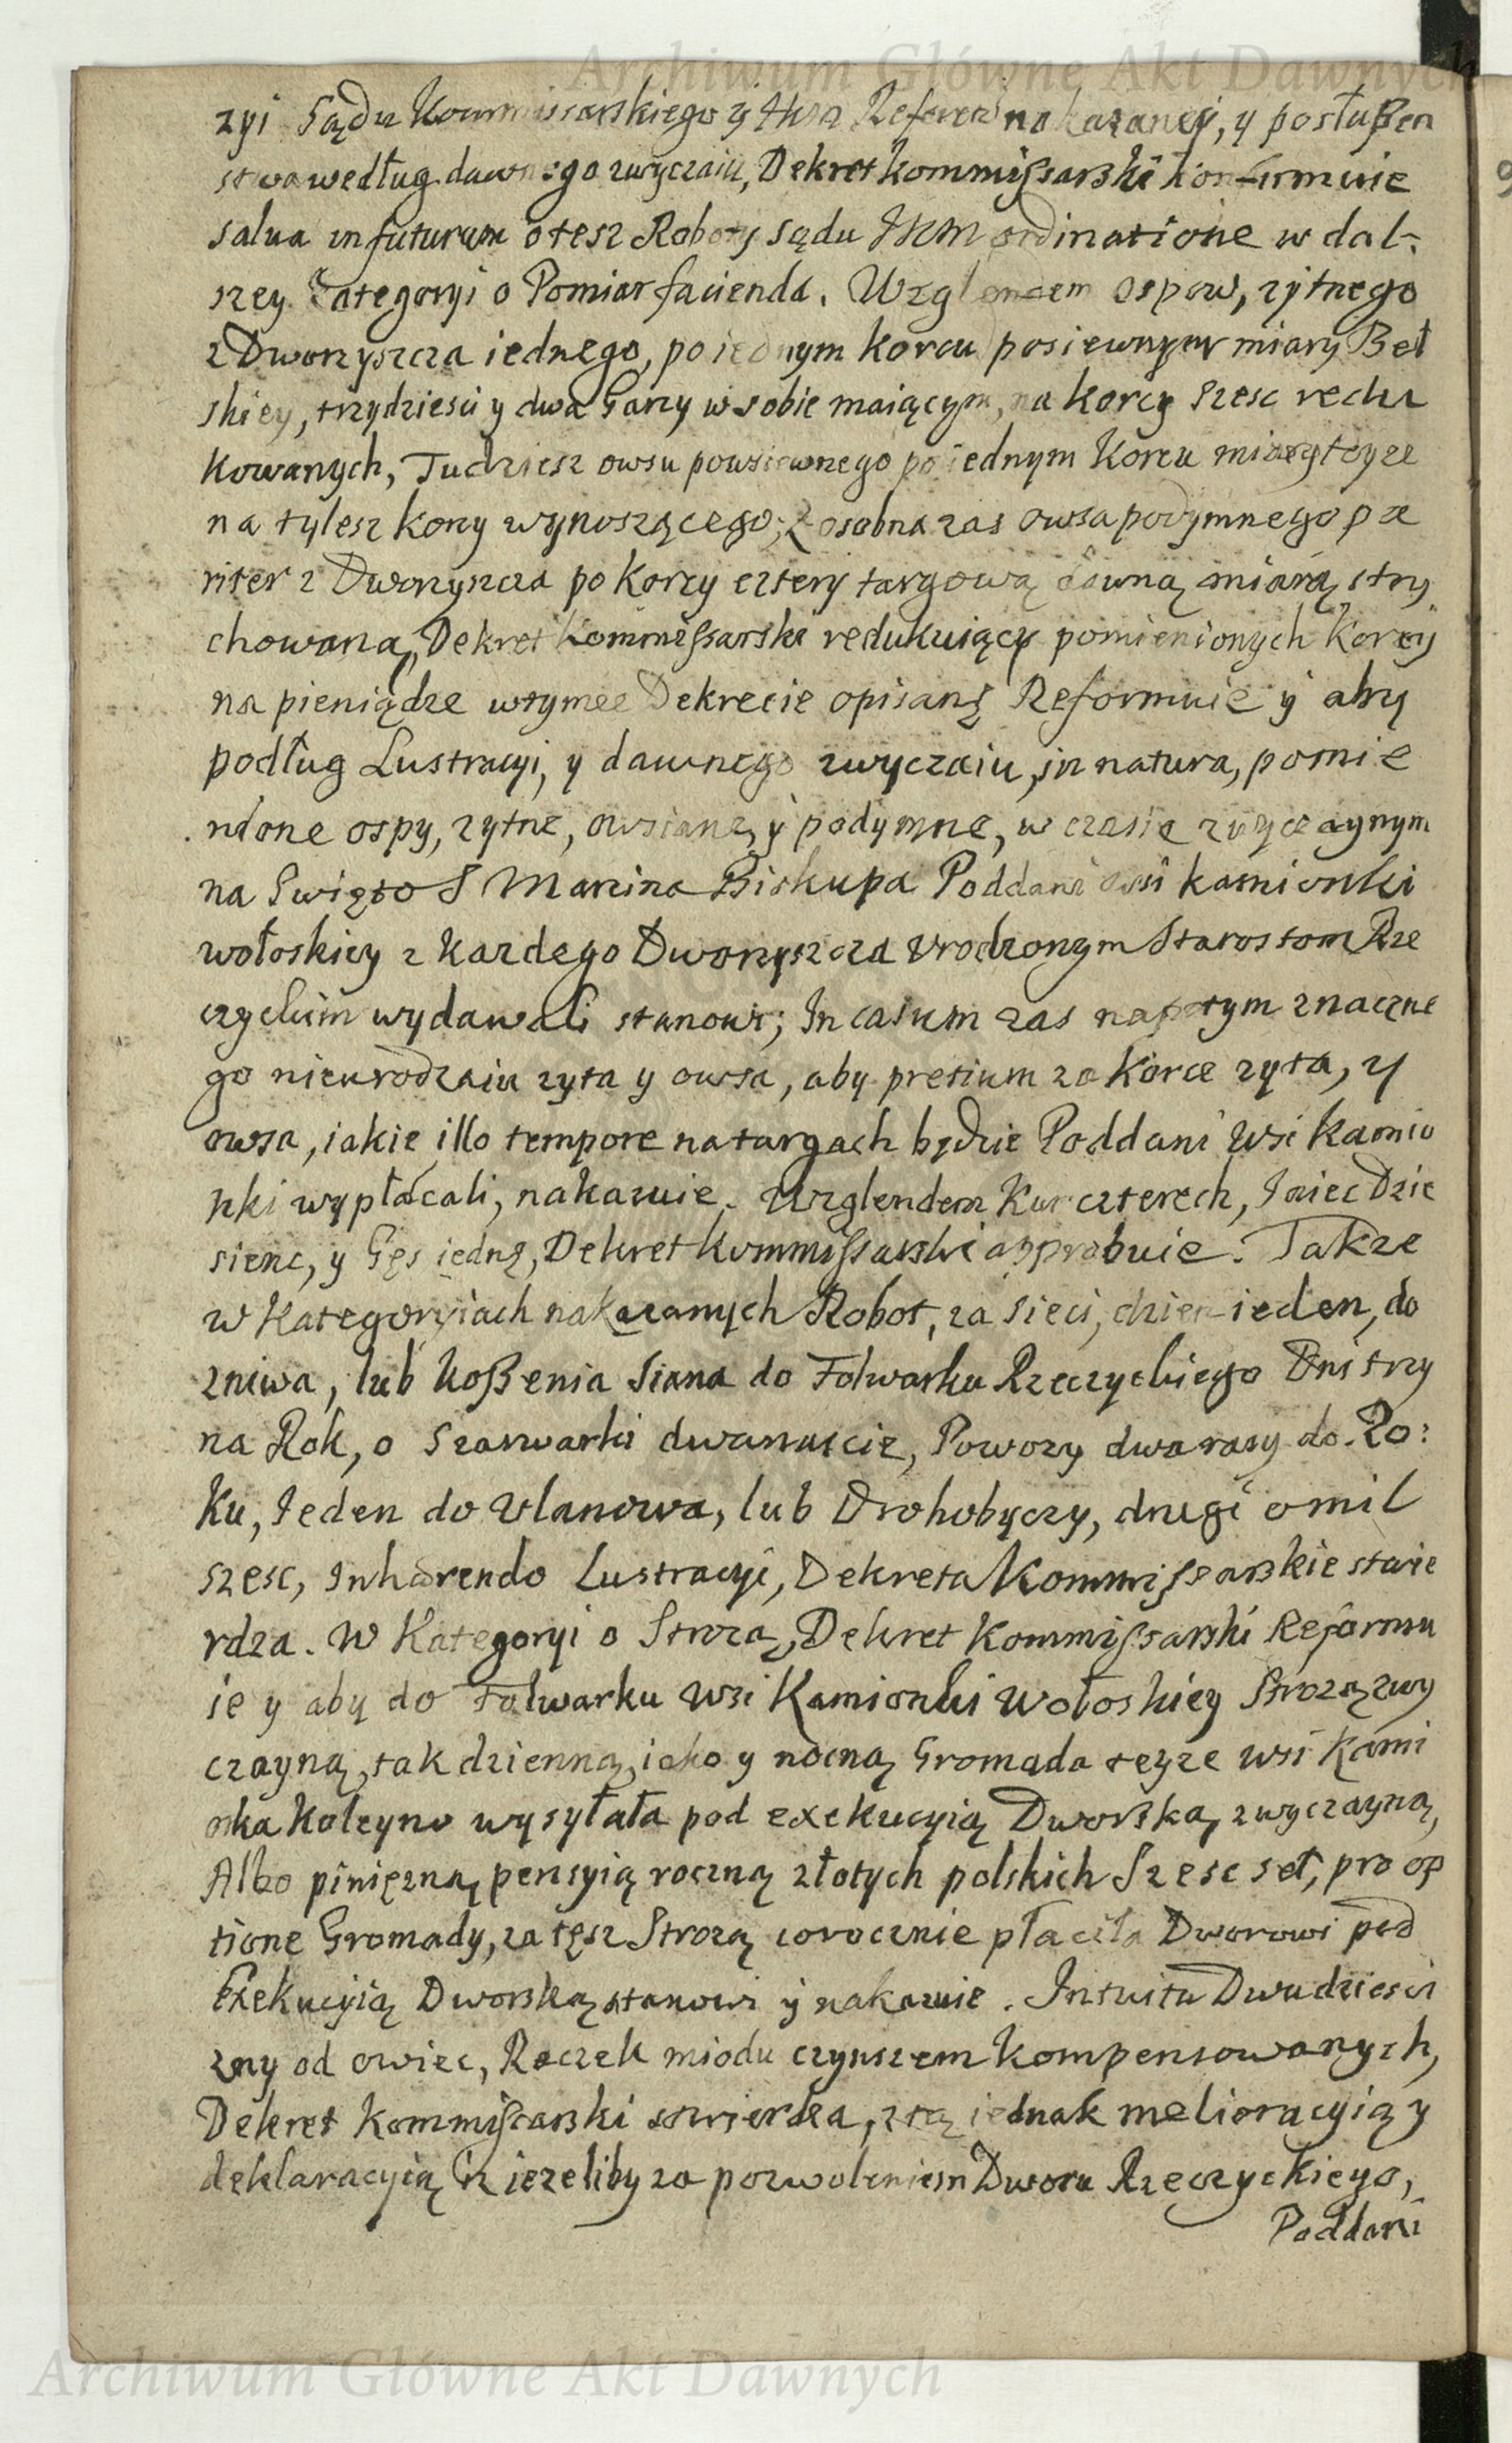 Archiwum Główne Akt Dawnych
zyi Sądu Kommissarskiego y nakazaney, y posłuszen
stwa według dawnego zwyczaiu, Dekret kommissarski konfirmuie
salva in futurum otesz Roboty sądu JKM ordinatione w dal-
szey Categoryi o Pomiar facienda. Wzglendem ospow, zytnego
z Dworzyszcza iednego, po iednym korcu posiewnym miary Beł
skiey, trzydziesci y dwa Garcy w sobie maiącym, na korcy szesc redu
kowanych, Tudziesz owsu powsiewnego po iednym Korcu miary teyze
na tylesz korcy wynoszącego; z osobna zas owsa podymnego pa
riter z Dworzyszcza po Korcy cztery targową rowną miarą stry
chowaną, Dekret kommissarski redukuiący pomienionych Korcy
na pieniądze wtymze Dekrecie opisany Reformuie y aby
podług Lustracyi, y dawnego zwyczaiu, in natura, pomie
nione ospy, zytne, owsiane, y podymne, w czasie zwyczaynym
na Swięto S Marcina Biskupa Poddani wsi kamionki
wołoskiey z kazdego Dworzyszcza Urodzonym Starostom Rze
czyckim wydawali stanowi; In casum zas napotym znaczne
go nieurodzaiu zyta y owsa, aby pretium za korce zyta, y
owsa, iakie illo tempore na targach będzie Poddani wsi Kamio
nki wypłacali, nakazuie. Wzglendem Kur czterech, Jaiec Dzie
sienc, y Gęs iedną, Dekret kommissarski approbuie. Takze
w Kategoryiach nakazanych Robot, za sieci, dzien ieden, do
zniwa, lub koszenia siana do Folwarku Rzeczyckiego Dni trzy
na Rok, o Szarwarki dwanascie, Powozy dwa razy do Ro:
ku, Jeden do Ulanowa, lub Drohobyczy, drugi o mil
szesc, Inhærendo Lustracyi, Dekreta Kommissarskie stwie
rdza. W Kategoryi o Strozą, Dekret kommissarski Reformu
ie y aby do Folwarku wsi Kamionki wołoskiey Strozą zwy
czayną, tak dzienną, iako y nocną Gromada teyze wsi kami
onka koleyno wysyłała pod exekucyią Dworską, zwyczayną,
Albo piniężną pensyią roczną złotych polskich Szesc set, pro op
tione Gromady, za tęsz Strozą corocznie płaciła Dworowi pod
Exekucyią Dworską stanowi y nakazuie. Intuitu Dwudziesci
zny od owiec, Rączek miodu czynszem kompensowanych,
Dekret Kommissarski stwierdza, z tą iednak melioracyią y
deklaracyią iz iezeliby za pozwoleniem Dworu Rzeczyckiego,
Poddani
Archiwum Główne Akt Dawnych